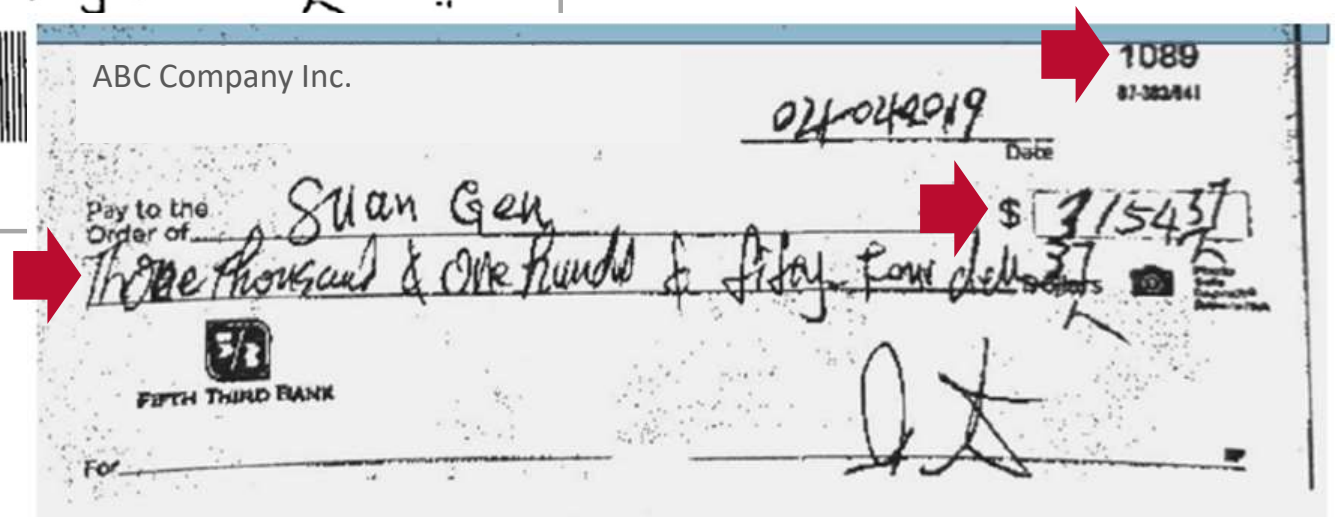 1089
ABC Company Inc.
87-382/841
04-042019
Date
Pay to the
Order of Suan Gen $ 3154 37
One thousand & One hundd & fifty four doll 37 Dollars
Photo
FIFTH THIRD BANK
For